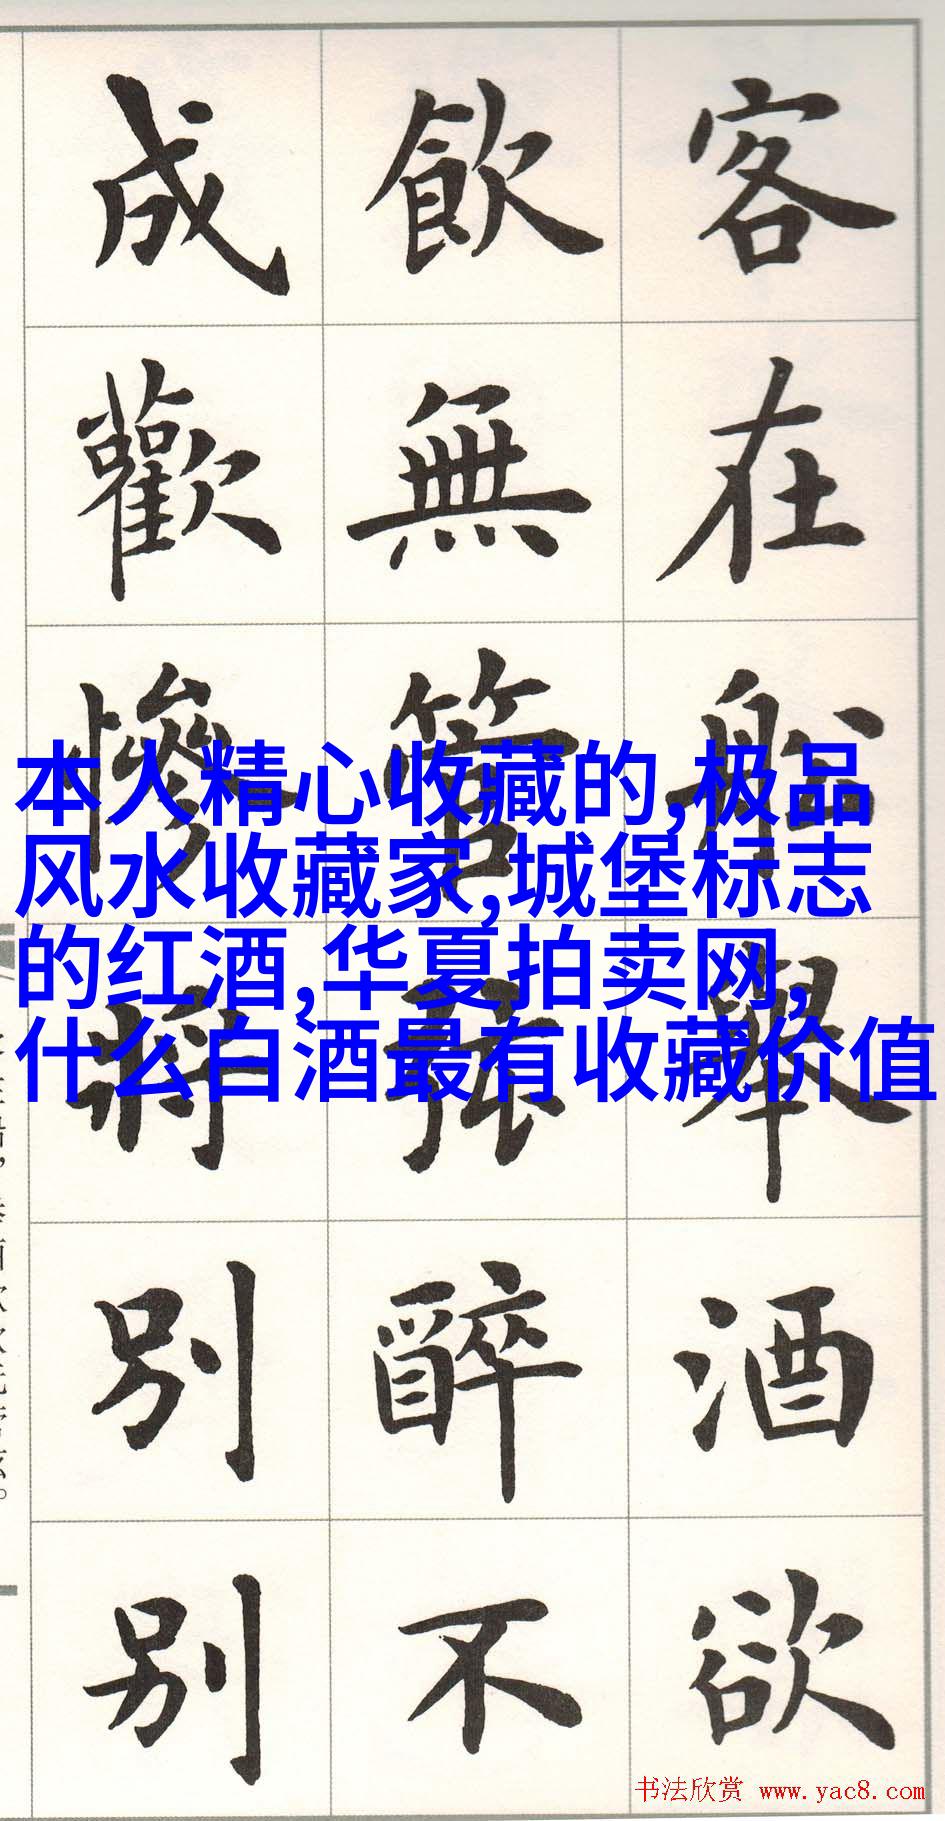 客在船舉酒欲
飲無管弦醉不
成歡慘將別別
本人精心收藏的,极品
风水收藏家,城堡标志
的红酒,华夏拍卖网,
什么白酒最有收藏价值
书法欣赏 www.yac8.com